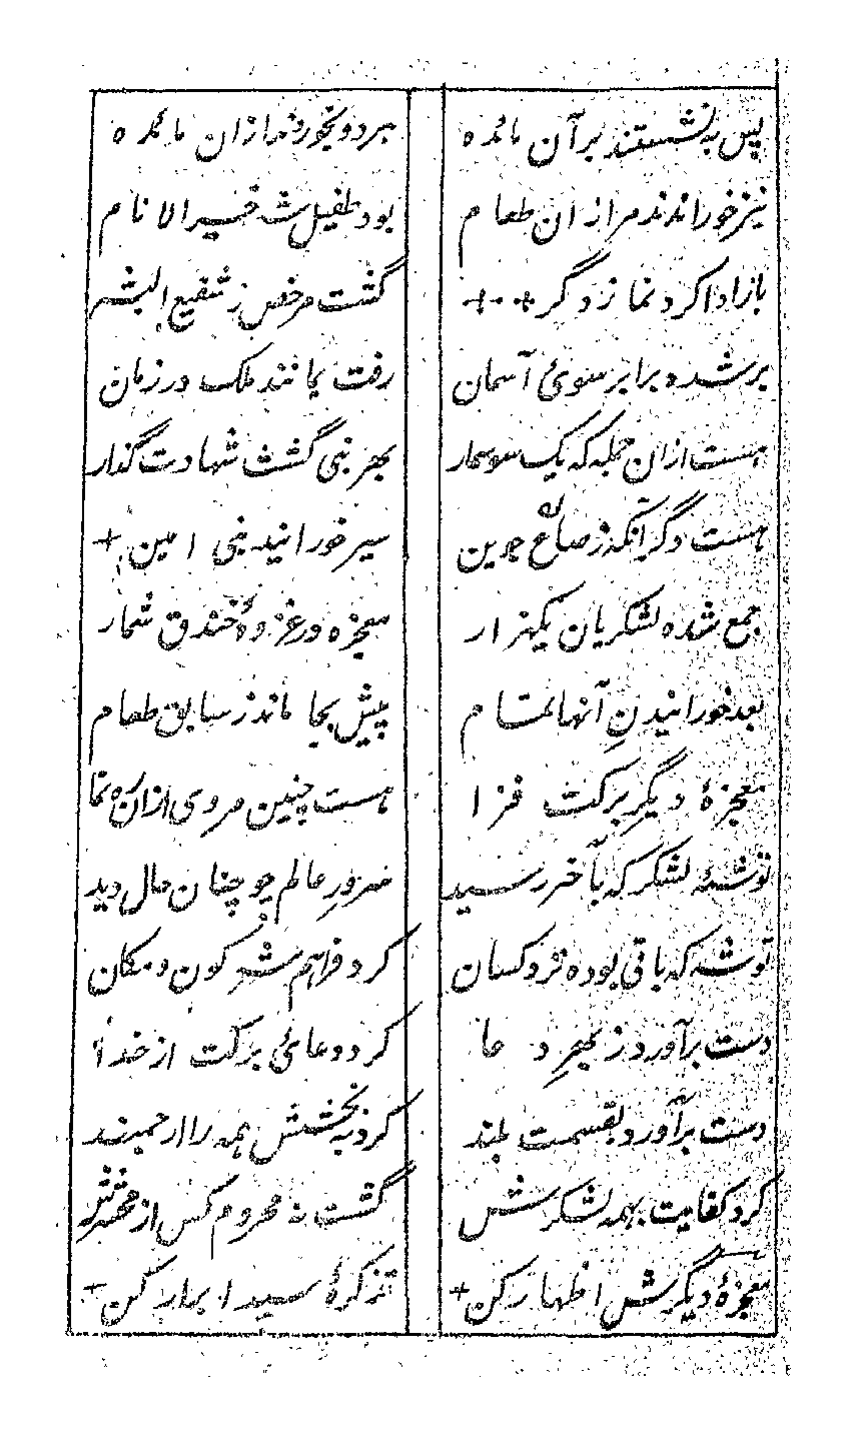 پس به نشستند برآن مائده	هردو بخوردند ازان مائده
نیز خوراندند مر از ان طعام	بود طفیل شه خیر الانام
باز ادا کرد نماز دگر +۰۰+	گشت مرخص ز شفیع البشر
بر شد و برابر سوئ آسمان	رفت بمانند ملک در زمان
هست ازان جمله که یک سوسمار	بهر نبی گشت شهادت گذار
هست دگر آنکه ز صاع جوین	سیر خورانید نبی امین +
جمع شده لشکریان یکهزار	معجزه در غزوهٔ خندق شمار
بعد خورانیدنِ آنها تمام	پیش بجا ماند ز سابق طعام
معجزهٔ دیگر برکت فزا	هست چنین مروی ازان ره نما
توشهٔ لشکر که بآخر رسید	سرورِ عالم چو چنان حال دید
توشه که باقی بوده نزد کسان	کرد فراهم شهِ کون و مکان
دست برآورد ز بهرِ دعا	کرد دعائ برکت از خدا
دست برآورد بقسمت بلند	کرد به بخشش همه را ارجمند
کرد کفایت بهمه لشکرش	گشت نه محروم کس از
معجزهٔ دیگرش اظهار کن +	تذکرهٔ سید ابرار کن +